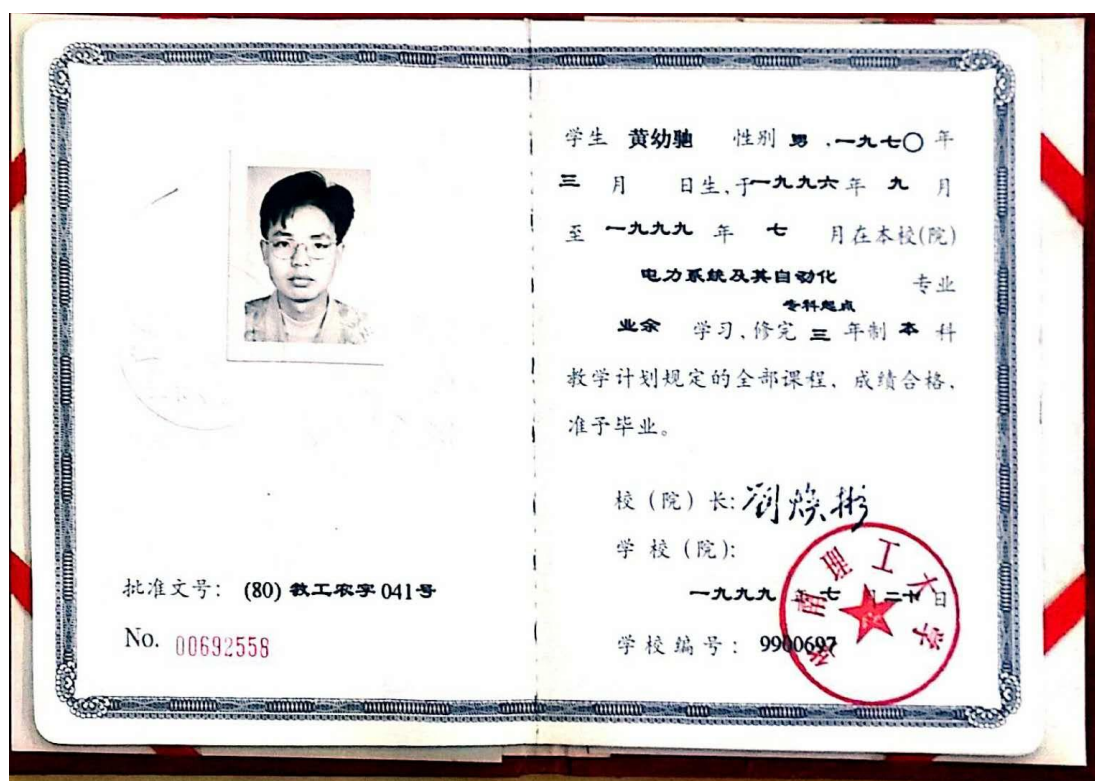 批准文号: (80) 教工农字 041号
No. 00692558
学生 黄幼驰 性别 男 ,一九七〇 年
三 月 日生,于一九九六年 九 月
至 一九九九 年 七 月在本校(院)
电力系统及其自动化 专业
专科起点
业余 学习、修完 三 年制 本 科
教学计划规定的全部课程、成绩合格、
准予毕业。
校(院)长: 刘焕彬
学校(院):
华南理工大学
一九九九 年 七 月二十日
学校编号: 9900697